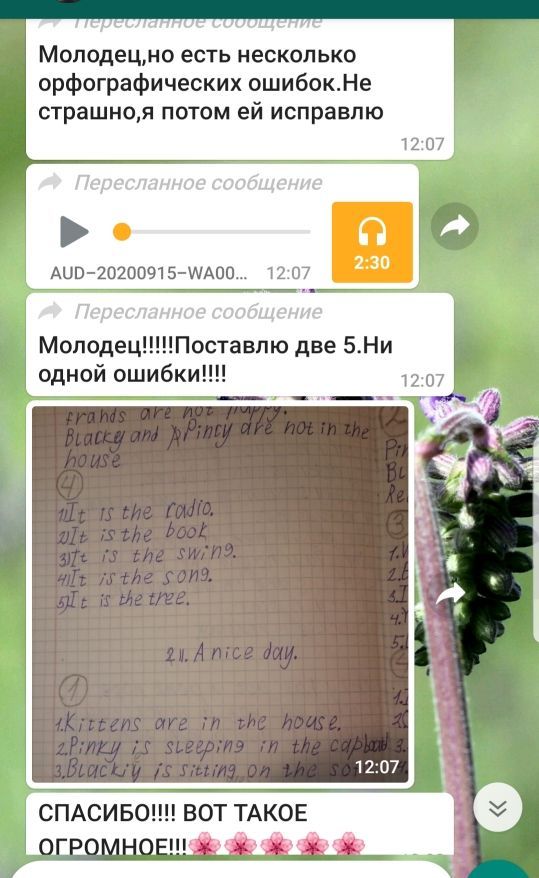 Пересланное сообщение
Молодец,но есть несколько
орфографических ошибок.Не
страшно,я потом ей исправлю
12:07
Пересланное сообщение
2:30
AUD-20200915-WA00... 12:07
Пересланное сообщение
Молодец!!!!!Поставлю две 5.Ни
одной ошибки!!!!
12:07
frands are not happy.
Blacky and Princy are not in the
house
4
1)It is the radio.
2)It is the book
3)It is the swing.
4)It is the song.
5)It is the tree.
A nice day.
1
1.Kittens are in the house.
2.Pinky is sleeping in the
3.Blackiy is sitting on the
2
3
12:07
СПАСИБО!!!! ВОТ ТАКОЕ
ОГРОМНОЕ!!!🌸🌸🌸🌸🌸